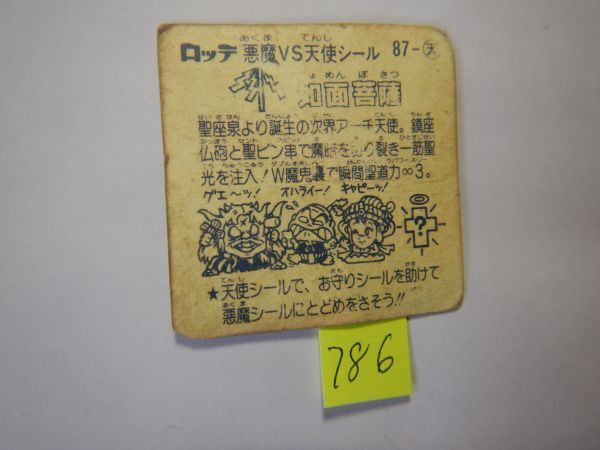 ロッテ 悪魔VS天使シール 87-天
面菩薩
聖座泉より誕生の次界アーチ天使。鎮座
仏砲と聖ピン串で魔を り裂き一筋聖
光を注入!W魔鬼裏で瞬間聖道力∞3。
ゲエ〜ッ! オハライー! キャピーッ!
?
★天使シールで、お守りシールを助けて
悪魔シールにとどめをさそう!!
786